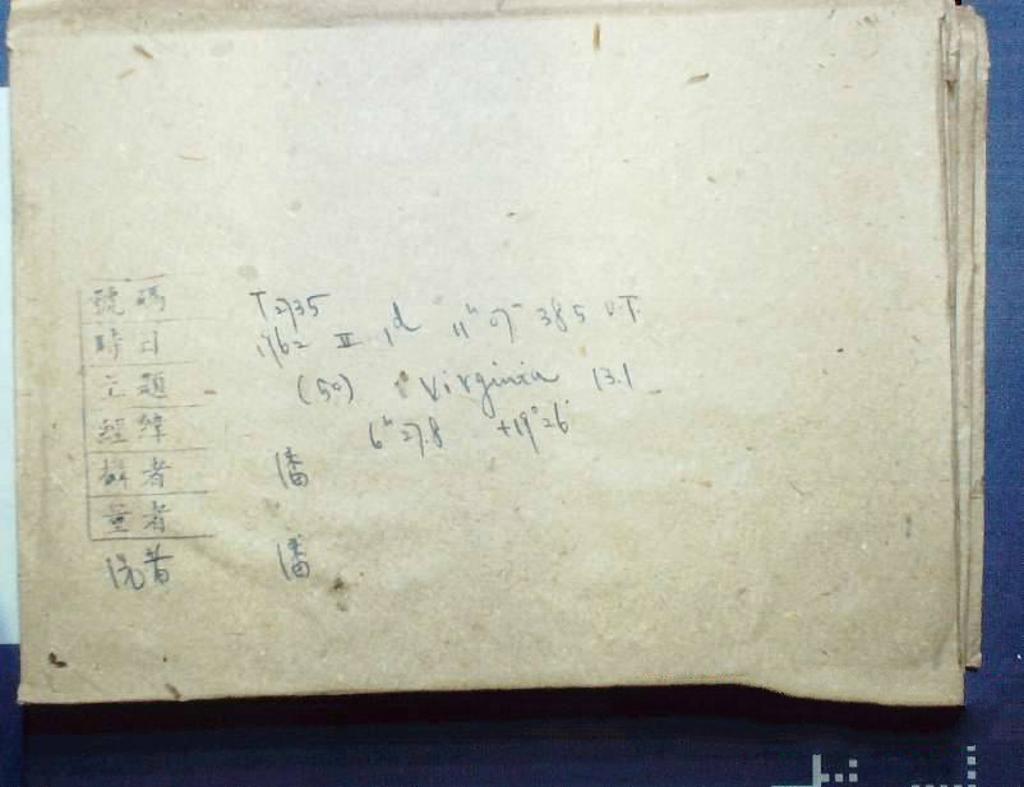 號碼 T2735
時日 1962 II 1ᵈ 11ʰ 07ᵐ 385 U.T.
主題 (50) Virginia 13.1
經緯 6ʰ 27.8 +19°26'
攝者 潘
量者
洗者 潘